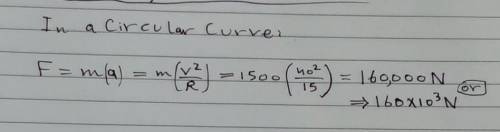 In a Circular Curve:
F = m(a) = m(v²/R) = 1500(40²/15) = 160,000 N or
⇒ 160×10³ N